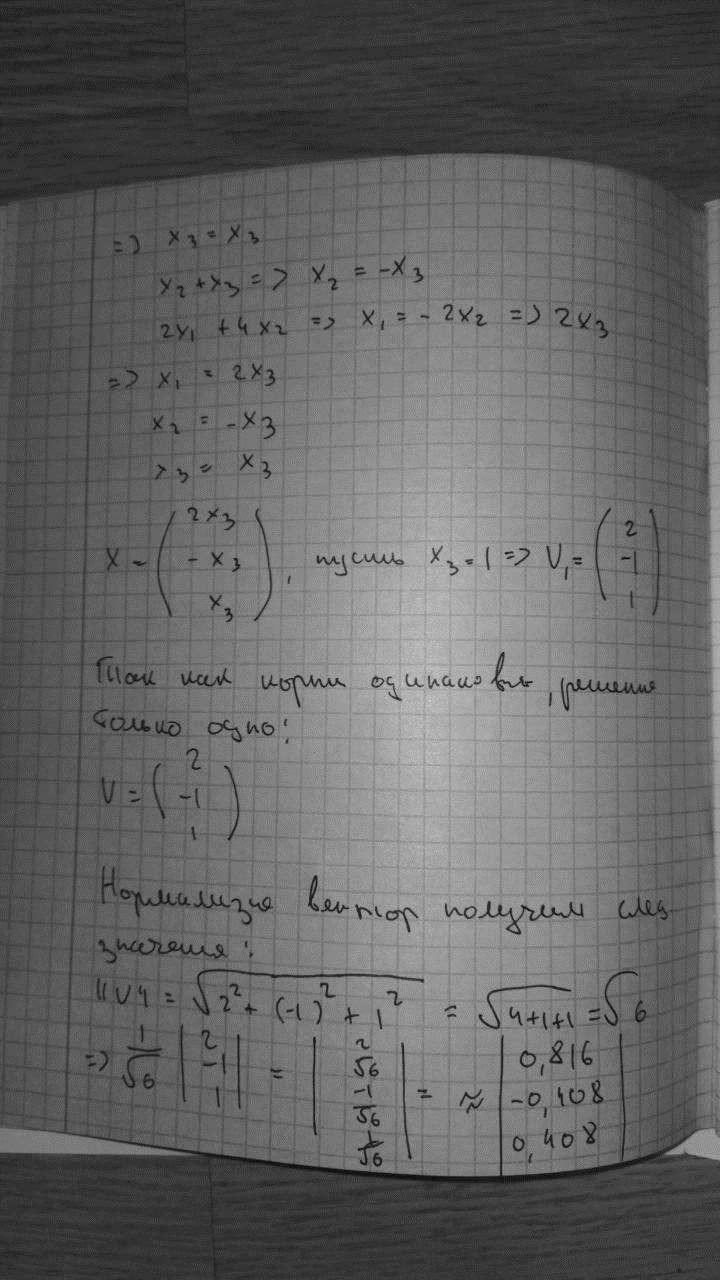 => x₃ = x₃
x₂ + x₃ => x₂ = -x₃
2x₁ + 4x₂ => x₁ = -2x₂ => 2x₃
=> x₁ = 2x₃
x₂ = -x₃
x₃ = x₃
X = (2x₃ -x₃ x₃), пусть x₃ = 1 => V₁ = (2 -1 1)
Так как корни одинаковы, решение
только одно:
V = (2 -1 1)
Нормализуя вектор получим след
значения:
||V|| = √2² + (-1)² + 1² = √4+1+1 = √6
=> 1/√6 |2 -1 1| = |2/√6 -1/√6 1/√6| = ≈ |0,816 -0,408 0,408|